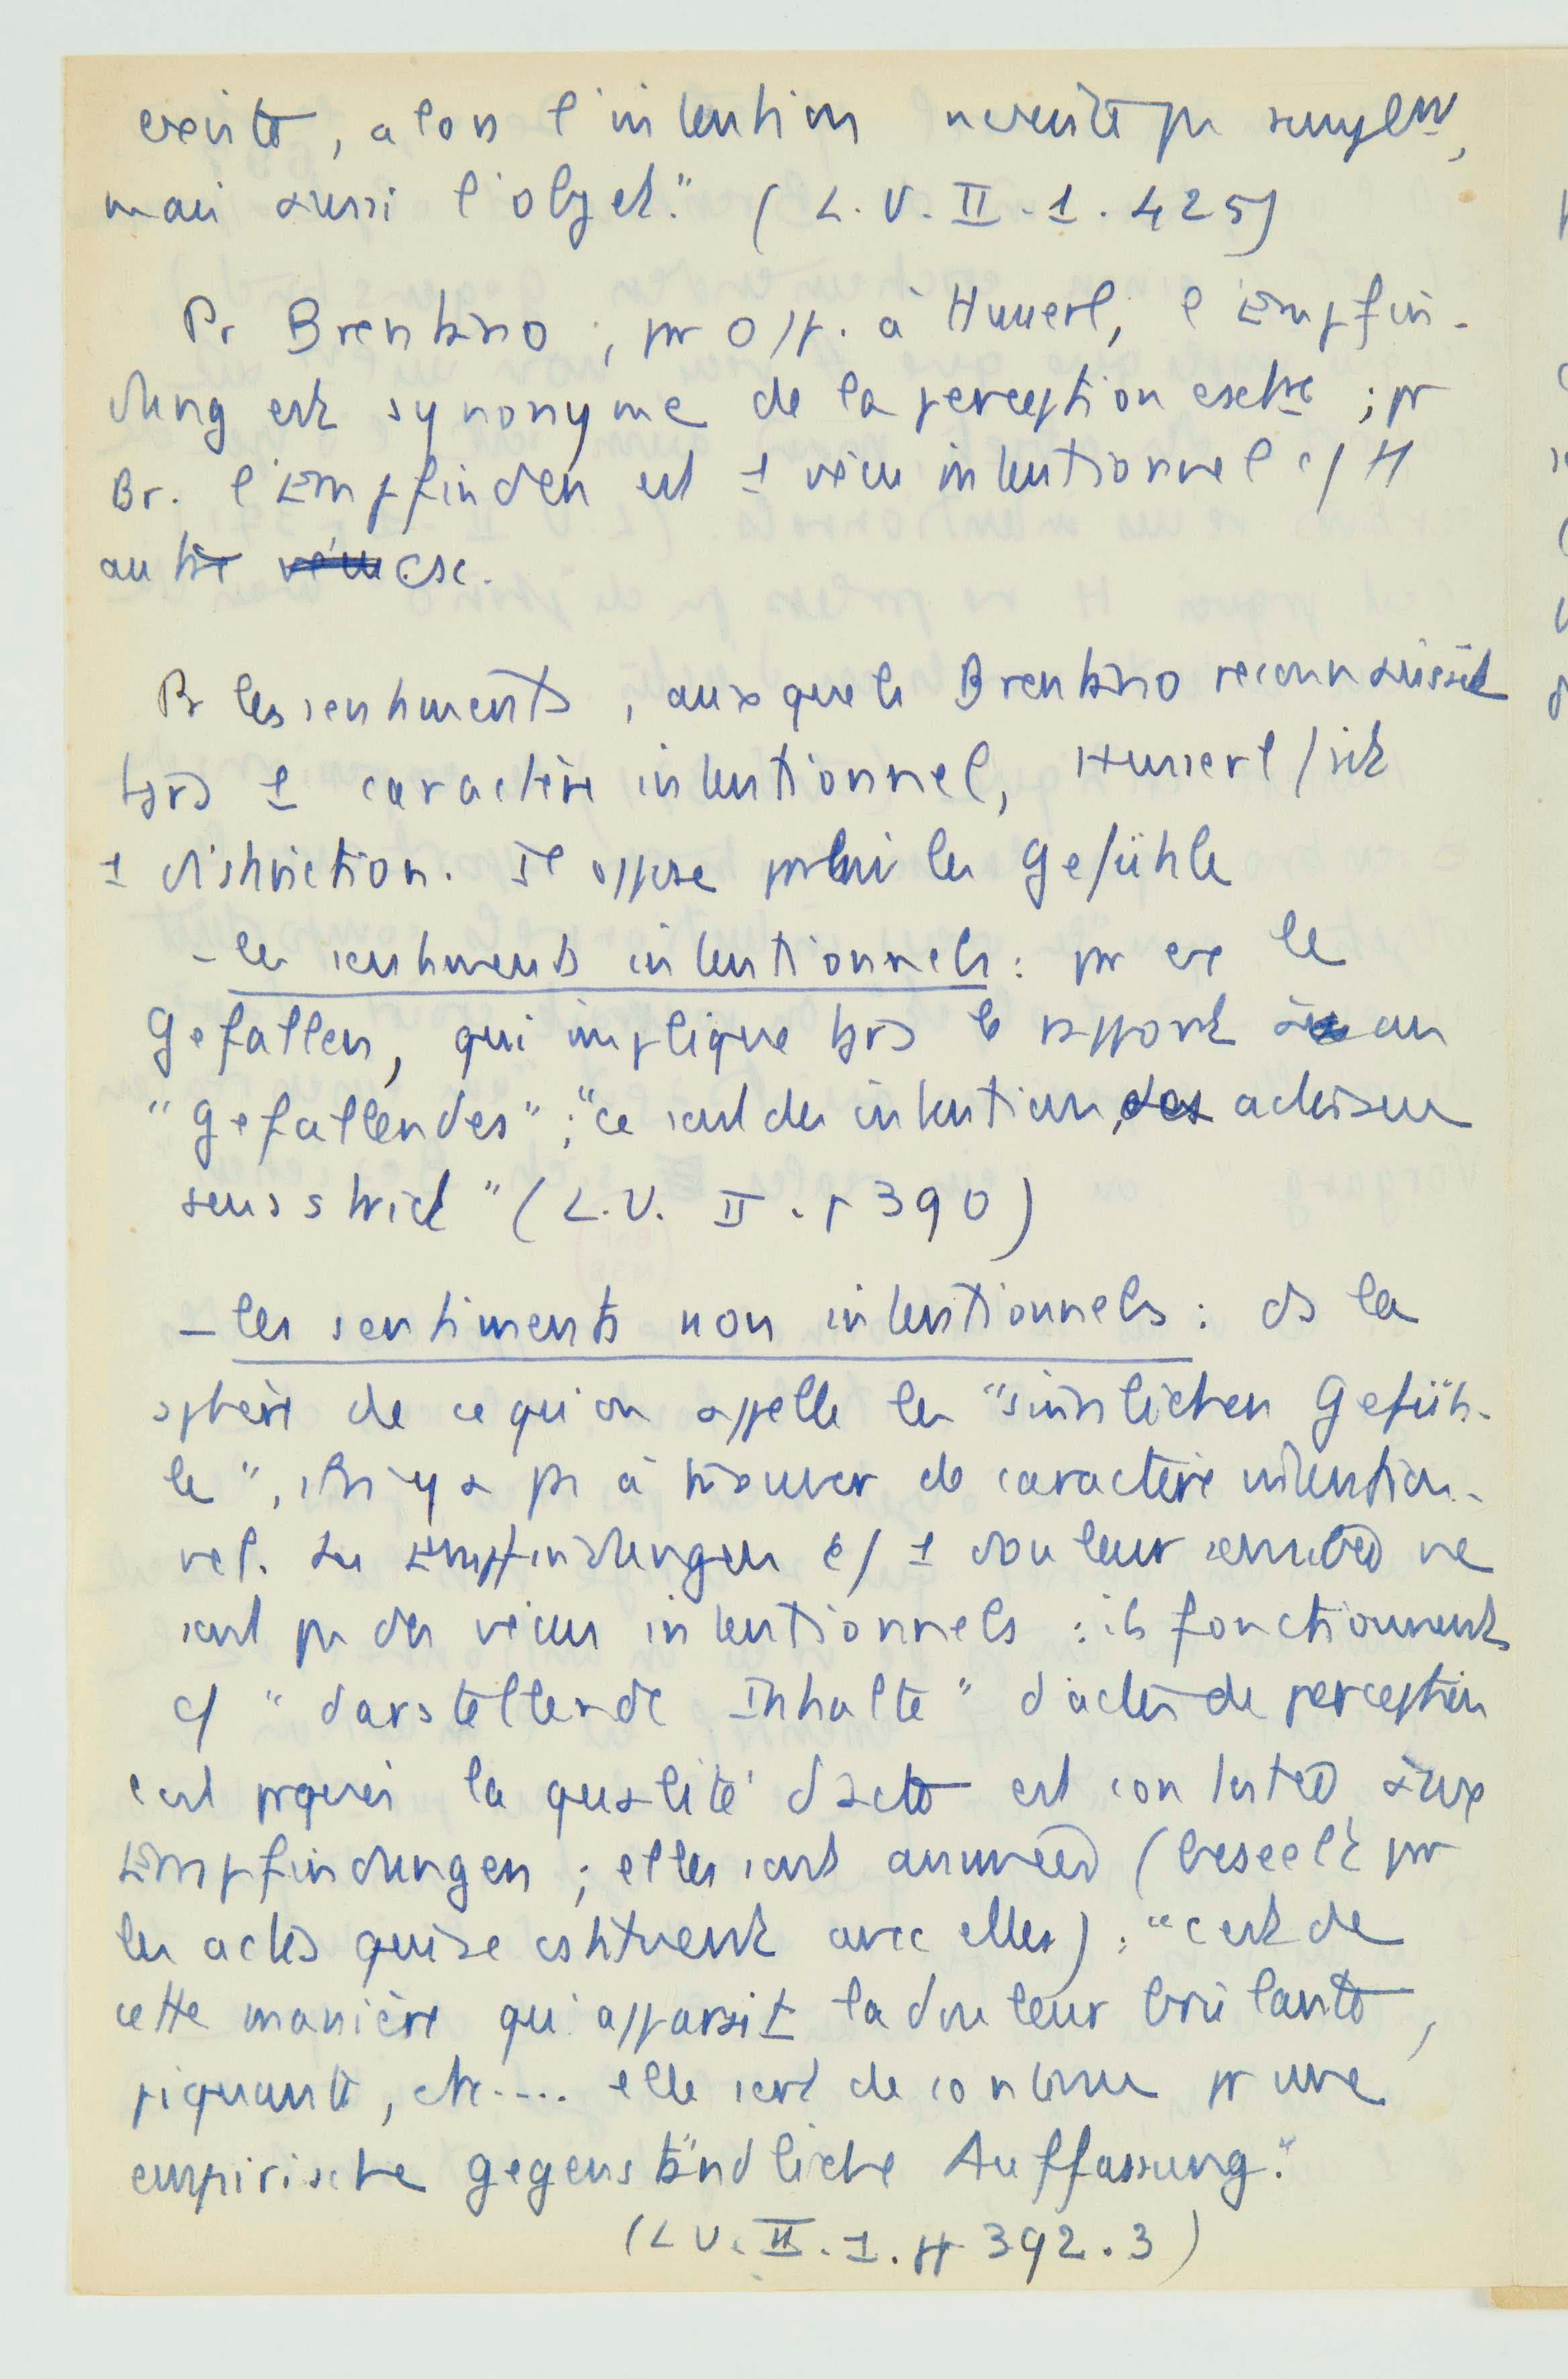 existe, alors l'intention n'existe pas seulemt,
mais aussi l'objet." (L.U. II-1. 425)
Pr Brentano, par opp. à Husserl, l'Empfin-
dung est synonyme de la perception extre ; pr
Br. l'Empfinden est 1 vécu intentionnel c/ tt
autre esc.
Pr les sentiments, auxquels Brentano reconnaissait
ts 1 caractère intentionnel, Husserl fait
1 distinction. Il oppose parmi les Gefühle
- les sentiments intentionnels : par ex le
Gefallen, qui implique ts le rapport au
"Gefallendes" ; "ce sont des intentions, des actes au
sens strict" (L.U. II. p 390)
- les sentiments non intentionnels : ds la
sphère de ce qu'on appelle les "sinnlichen Gefüh-
le", il n'y a pas à trouver de caractère intention-
nel. Les Empfindungen c/ 1 douleur ne
sont pas des vécus intentionnels : ils fonctionnent
c/ "darstellende Inhalte" d'actes de perception
c'est pquoi la qualité d'acte est contestée aux
Empfindungen ; elles sont animées (beseelt par
les actes qui se cstituent avec elles) : "c'est de
cette manière qu'apparait la douleur brûlante,
piquante, etc.... elle sert de contenu pr une
empirische gegenständliche Auffassung."
(L U. II. 1. pp 392.3)